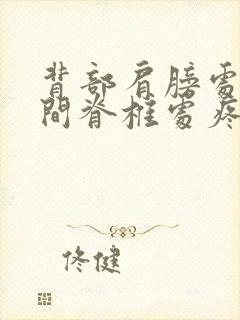 背部肩膀處
間脊椎處疼
佟健